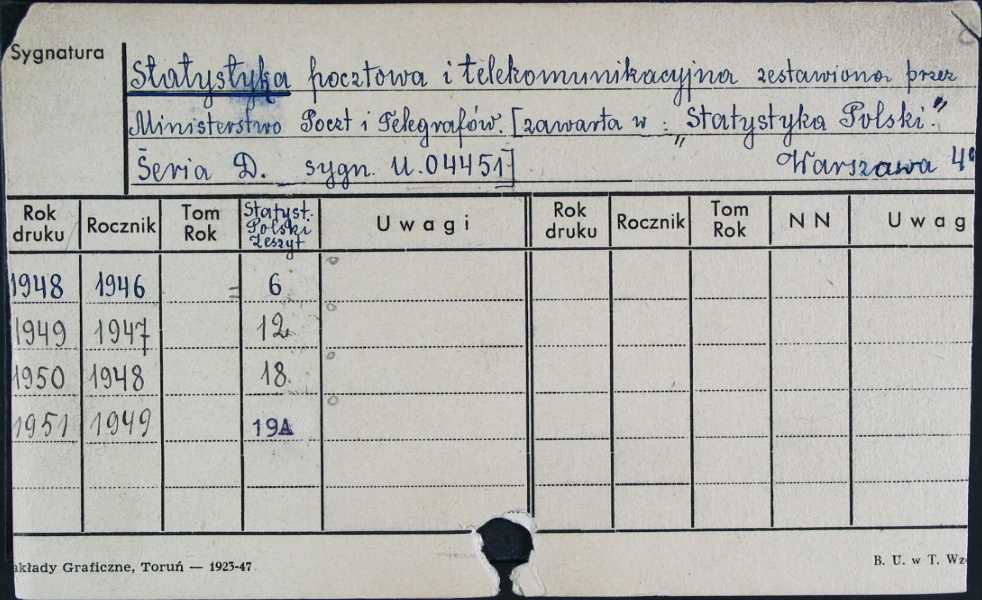 Sygnatura
Statystyka pocztowa i telekomunikacyjna zestawiona przez
Ministerstwo Poczt i Telegrafów. [zawarta w: „Statystyka Polski."
Seria D. sygn. U.04451] Warszawa 4°
Rok druku Rocznik Tom Rok Statyst. Polski Zeszyt Uwagi Rok druku Rocznik Tom Rok NN Uwag
1948 1946 = 6
1949 1947 12
1950 1948 18
1951 1949 19A
akłady Graficzne, Toruń — 1923-47 B. U. w T. Wz